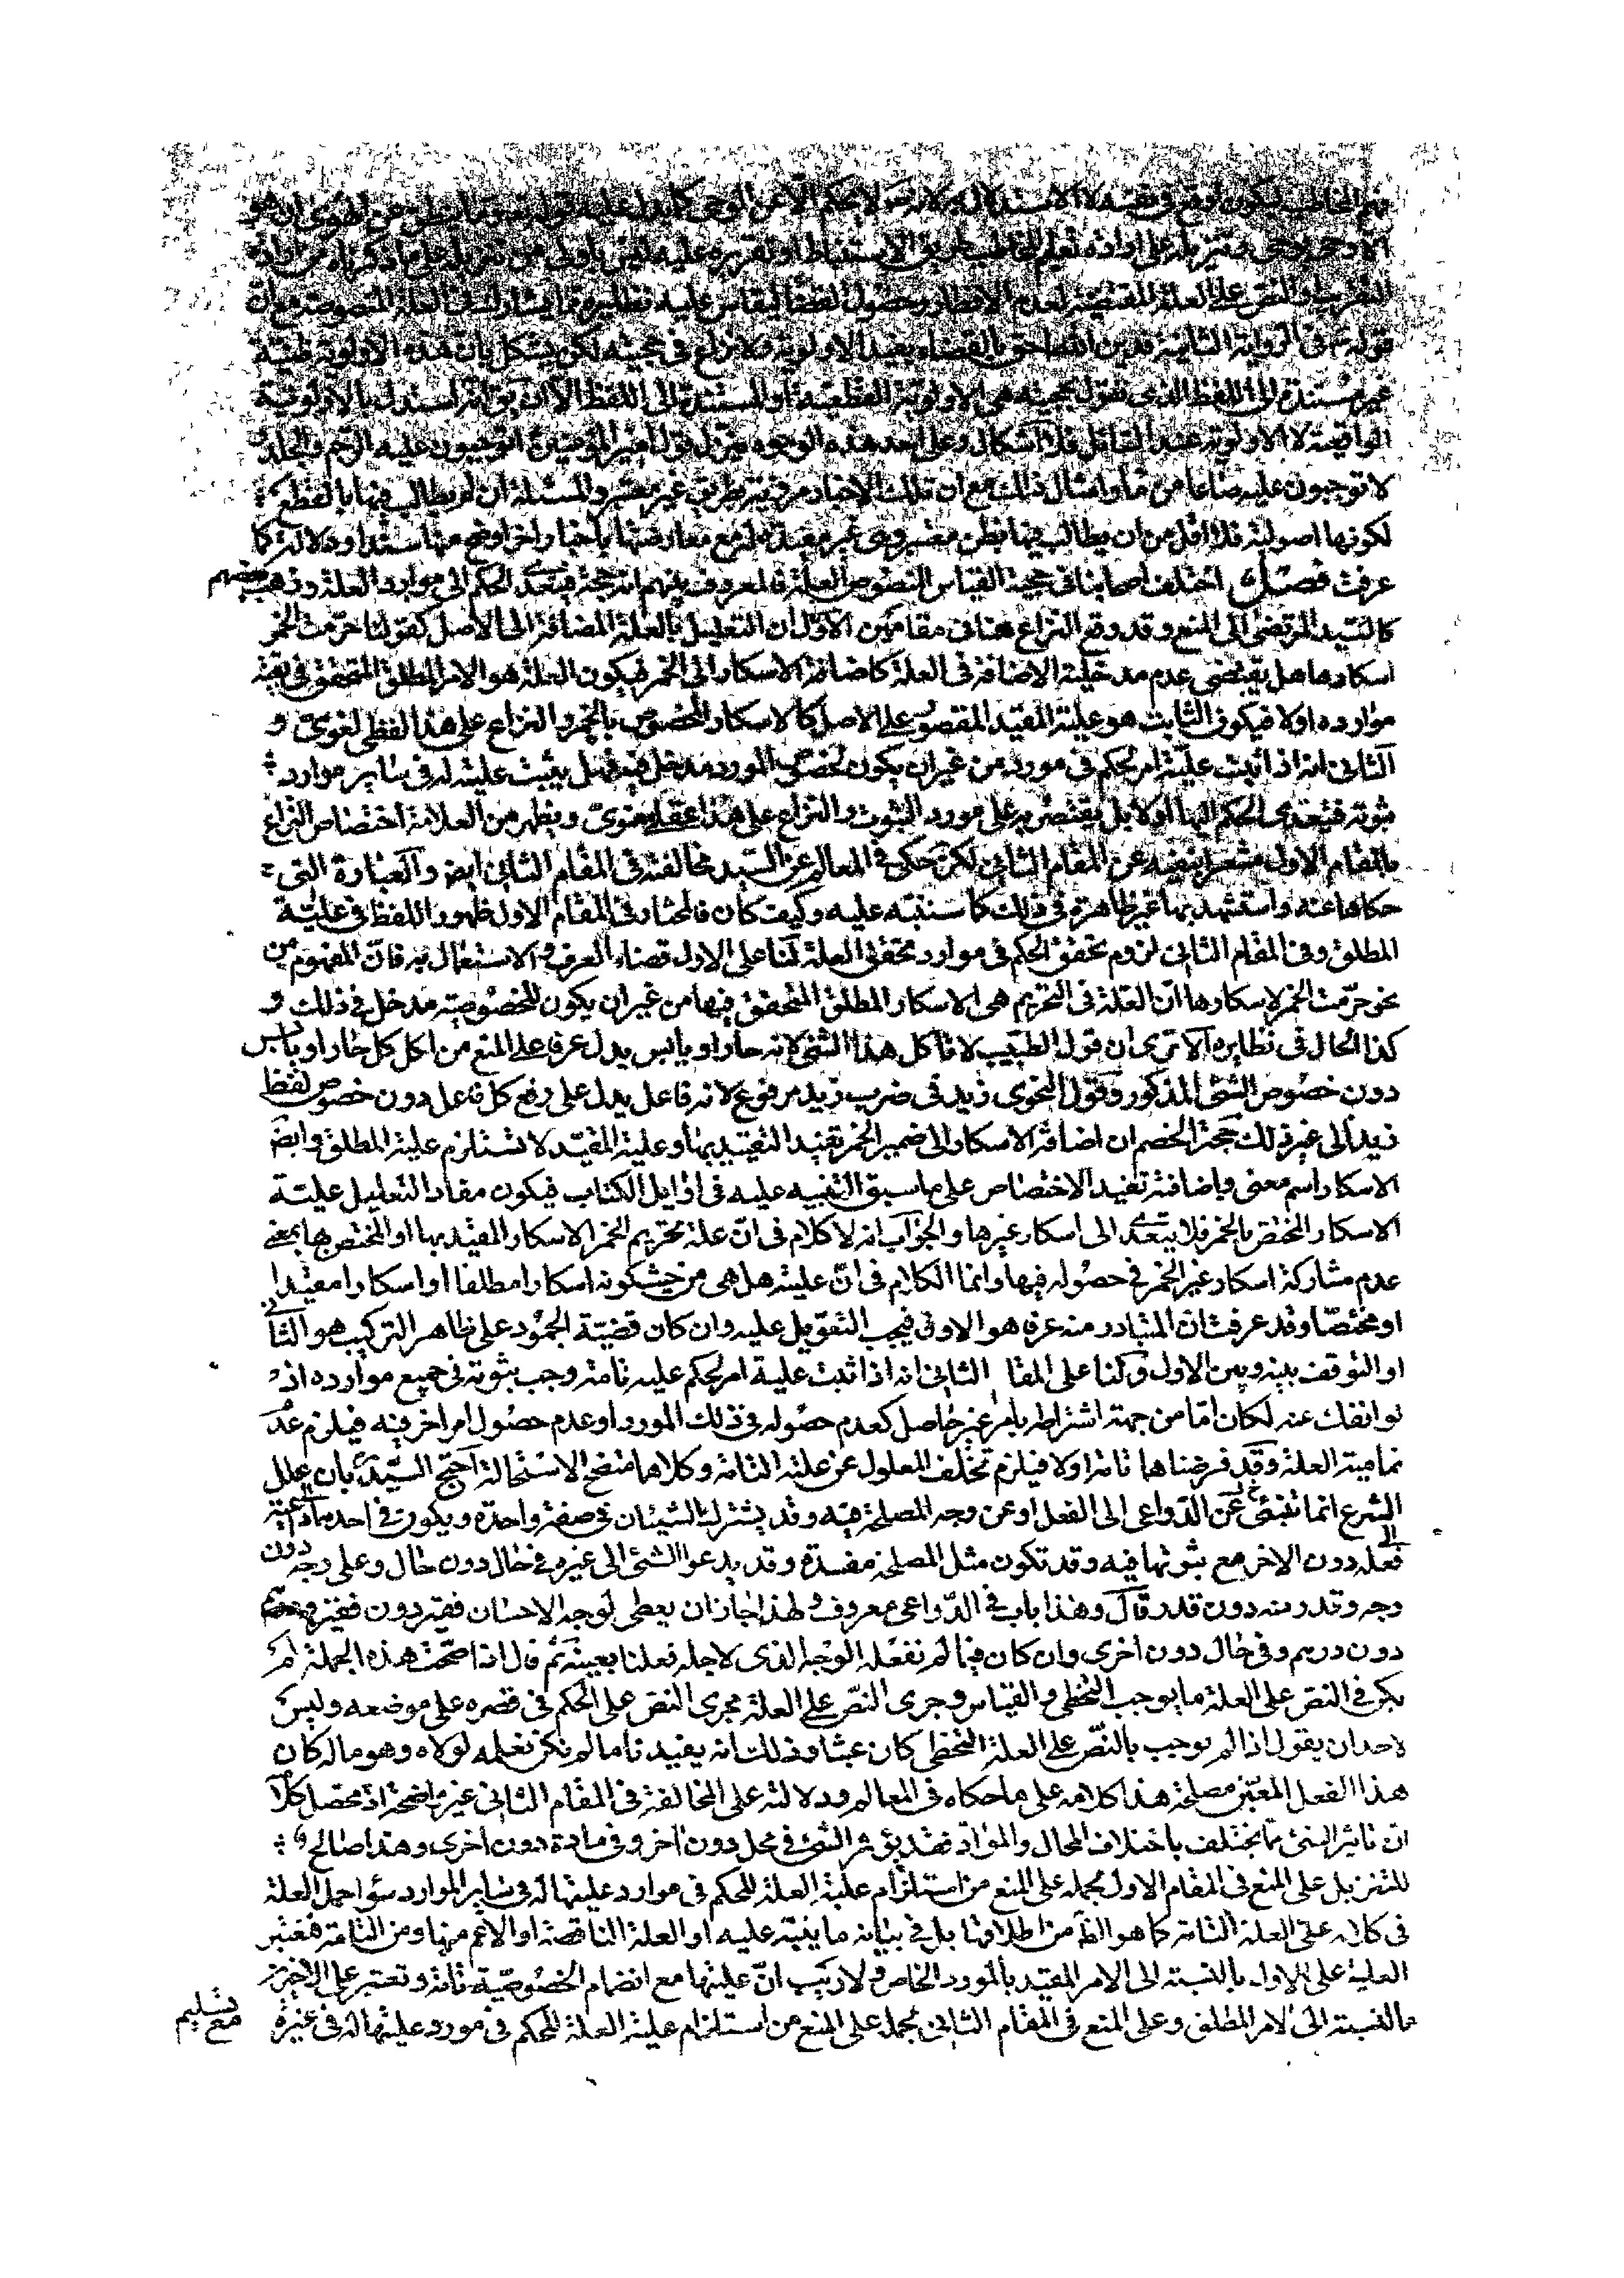 فهم المخاطب ليكون اوقع فى نفسه لا الاستدلال به لانه لا يحكم الا عن الوحى كما يدل عليه قوله تعالى وما ينطق عن الهوى ان هو
الا وحى يوحى وتنزيله على ارادة تعليم المخاطب طريق الاستنباط او تقريره عليه ليس باولى من تنزيله على ما ذكرناه من ارادة
التقريب او النص على العلة المقتضية لعدم الافطار وحصول القضاء ليقاس عليه نظايره مما يشاركه فى العلة المنصوصة مع ان
قوله فى الرواية الثانية فدين الله احق بالقضاء يفيد الاولوية فلا نزاع فى حجيته لكن يشكل بان هذه الاولوية ظنية
غير مستندة الى اللفظ الذى نقول بحجيته هى الاولوية القطعية او المستندة الى اللفظ الا ان يق انه استدل بالاولوية
الواقعية لا الاولوية عند السائل فلا اشكال وعلى احد هذه الوجوه ينزل قول امير المؤمنين اتوجبون عليه الرجم والجلد
لا توجبون عليه صاعا من ماء وامثال ذلك مع ان تلك الاخبار مروية بطريق غير معتبر والمسئلة ان لم يطالب فيها بالقطع
لكونها اصولية فلا اقل من ان يطالب فيها بظن معتبر وهى غير مفيدة له مع معارضتها باخبار اخر اوضح منها سندا ودلالة كما
عرفت فصل اختلف اصحابنا فى حجية القياس المنصوص العلة فالمعروف بينهم انه حجة فيتعدى الحكم الى موارد العلة وذهب بعضهم
كالسيد المرتضى الى المنع وقد وقع النزاع هنا فى مقامين الاول ان التعليل بالعلة المضافة الى الاصل كقولنا حرمت الخمر
لاسكارها هل يقتضى عدم مدخلية الاضافة فى العلة كاضافة الاسكار الى الخمر فيكون العلة هو الامر المطلق المتحقق فى بقية
موارده اولا فيكون الثابت هو علية المقيد المقصور على الاصل كالاسكار المخصوص بالخمر والنزاع على هذا لفظى لغوى و
الثانى انه اذا ثبت علية امر لحكم فى مورد من غير ان يكون لخصوص المورد مدخل فيه فهل يثبت عليته له فى ساير موارد
ثبوته فيتعدى الحكم اليها اولا بل يقتصر به على مورد الثبوت والنزاع على هذا عقلى معنوى ويظهر من العلامة اختصاص النزاع
بالمقام الاول مشعرا بنفيه عن المقام الثانى لكن حكى فى المعالم عن السيد مخالفته فى المقام الثانى ايض والعبارة التى
حكاها عنه واستشهد بها غير ظاهرة فى ذلك كما سننبه عليه وكيف كان فالمختار فى المقام الاول ظهور اللفظ فى علية
المطلق وفى المقام الثانى لزوم تحقق الحكم فى موارد تحقق العلة لنا على الاول قضاء العرف والاستعمال به فان المفهوم من
نحو حرمت الخمر لاسكارها ان العلة فى التحريم هى الاسكار المطلق المتحقق فيها من غير ان يكون للخصوصية مدخل فى ذلك و
كذا الحال فى نظايره الا ترى ان قول الطبيب لا تاكل هذا الشئ لانه حار او يابس يدل عرفا على المنع من اكل كل حار او يابس
دون خصوص الشئ المذكور وقول النحوى زيد فى ضرب زيد مرفوع لانه فاعل يدل على رفع كل فاعل دون خصوص لفظ
زيد الى غير ذلك حجة الخصم ان اضافة الاسكار الى ضمير الخمر تفيد التقييد بها وعلية المقيد لا تستلزم علية المطلق وايض
الاسكار اسم معنى واضافته تفيد الاختصاص على ما سبق التنبيه عليه فى اوايل الكتاب فيكون مفاد التعليل علية
الاسكار المختص بالخمر فلا يتعدى الى اسكار غيرها والجواب انه لا كلام فى ان علة تحريم الخمر الاسكار المقيد بها او المختص بها بمعنى
عدم مشاركة اسكار غير الخمر فى حصوله فيها وانما الكلام فى ان عليته هل هى من حيث كونه اسكارا مطلقا او اسكارا مقيدا
او مختصا وقد عرفت ان المتبادر منه عرفا هو الاول فيجب التعويل عليه وان كان قضية الجمود على ظاهر التركيب هو الثانى
او التوقف بينه وبين الاول ولنا على المقا الثانى انه اذا ثبت علية امر لحكم علية تامة وجب ثبوته فى جميع موارده اذ
لو انفك عنه لكان اما من جهة اشتراطه بامر غير حاصل كعدم حصوله فى ذلك المورد او عدم حصول امر اخر فيه فيلزم عدم
تمامية العلة وقد فرضناها تامة اولا فيلزم تخلف المعلول عن علته التامة وكلاهما متضح الاستحالة احتج السيد بان علل
الشرع انما تنبئ عن الدواعى الى الفعل او عن وجه المصلحة فيه وقد يشترك الشيئان فى صفة واحدة ويكون فى احدهما داعية الى
فعله دون الاخر مع ثبوتها فيه وقد تكون مثل المصلحة مفسدة وقد يدعو الشئ الى غيره فى حال دون حال وعلى وجه دون
وجه وقدر منه دون قدر قال وهذا باب فى الدواعى معروف ولهذا جاز ان يعطى لوجه الاحسان فقير دون فقير ودرهم
دون درهم وفى حال دون اخرى وان كان فيما لم نفعله الوجه الذى لاجله فعلنا بعينه ثم قال اذا صحت هذه الجملة لم
يكن فى النص على العلة ما يوجب التخطى والقياس وجرى النص على العلة مجرى النص على الحكم فى قصره على موضعه وليس
لاحد ان يقول اذا لم يوجب بالنص على العلة التخطى كان عبثا وذلك انه يفيدنا ما لم نكن نعلمه لولاه وهو ما له كان
هذا الفعل المعين مصلحة هذا كلامه على ما حكاه فى المعالم ودلالته على المخالفة فى المقام الثانى غير واضحة اذ محصل كلامه
ان تاثير الشئ مما يختلف باختلاف المحال والمواد فقد يؤثر الشئ فى محل دون اخر وفى مادة دون اخرى وهذا صالح
للتنزيل على المنع فى المقام الاول بحمله على المنع من استلزام علية العلة للحكم فى موارد عليتها له فى ساير الموارد سواء حمل العلة
فى كلامه على العلة التامة كما هو الظ من اطلاقها بل فى بيانه ما ينبه عليه او العلة الناقصة او الاعم منها ومن التامة فتعتبر
العلية على الاول بالنسبة الى الامر المقيد بالمورد الخاص ولا ريب ان عليتها مع انضمام الخصوصية تامة وتعتبر على الاخيرين
بالنسبة الى الامر المطلق وعلى المنع فى المقام الثانى بحمله على المنع من استلزام علية العلة للحكم فى مورد عليتها له فى غيره
مع تسليم